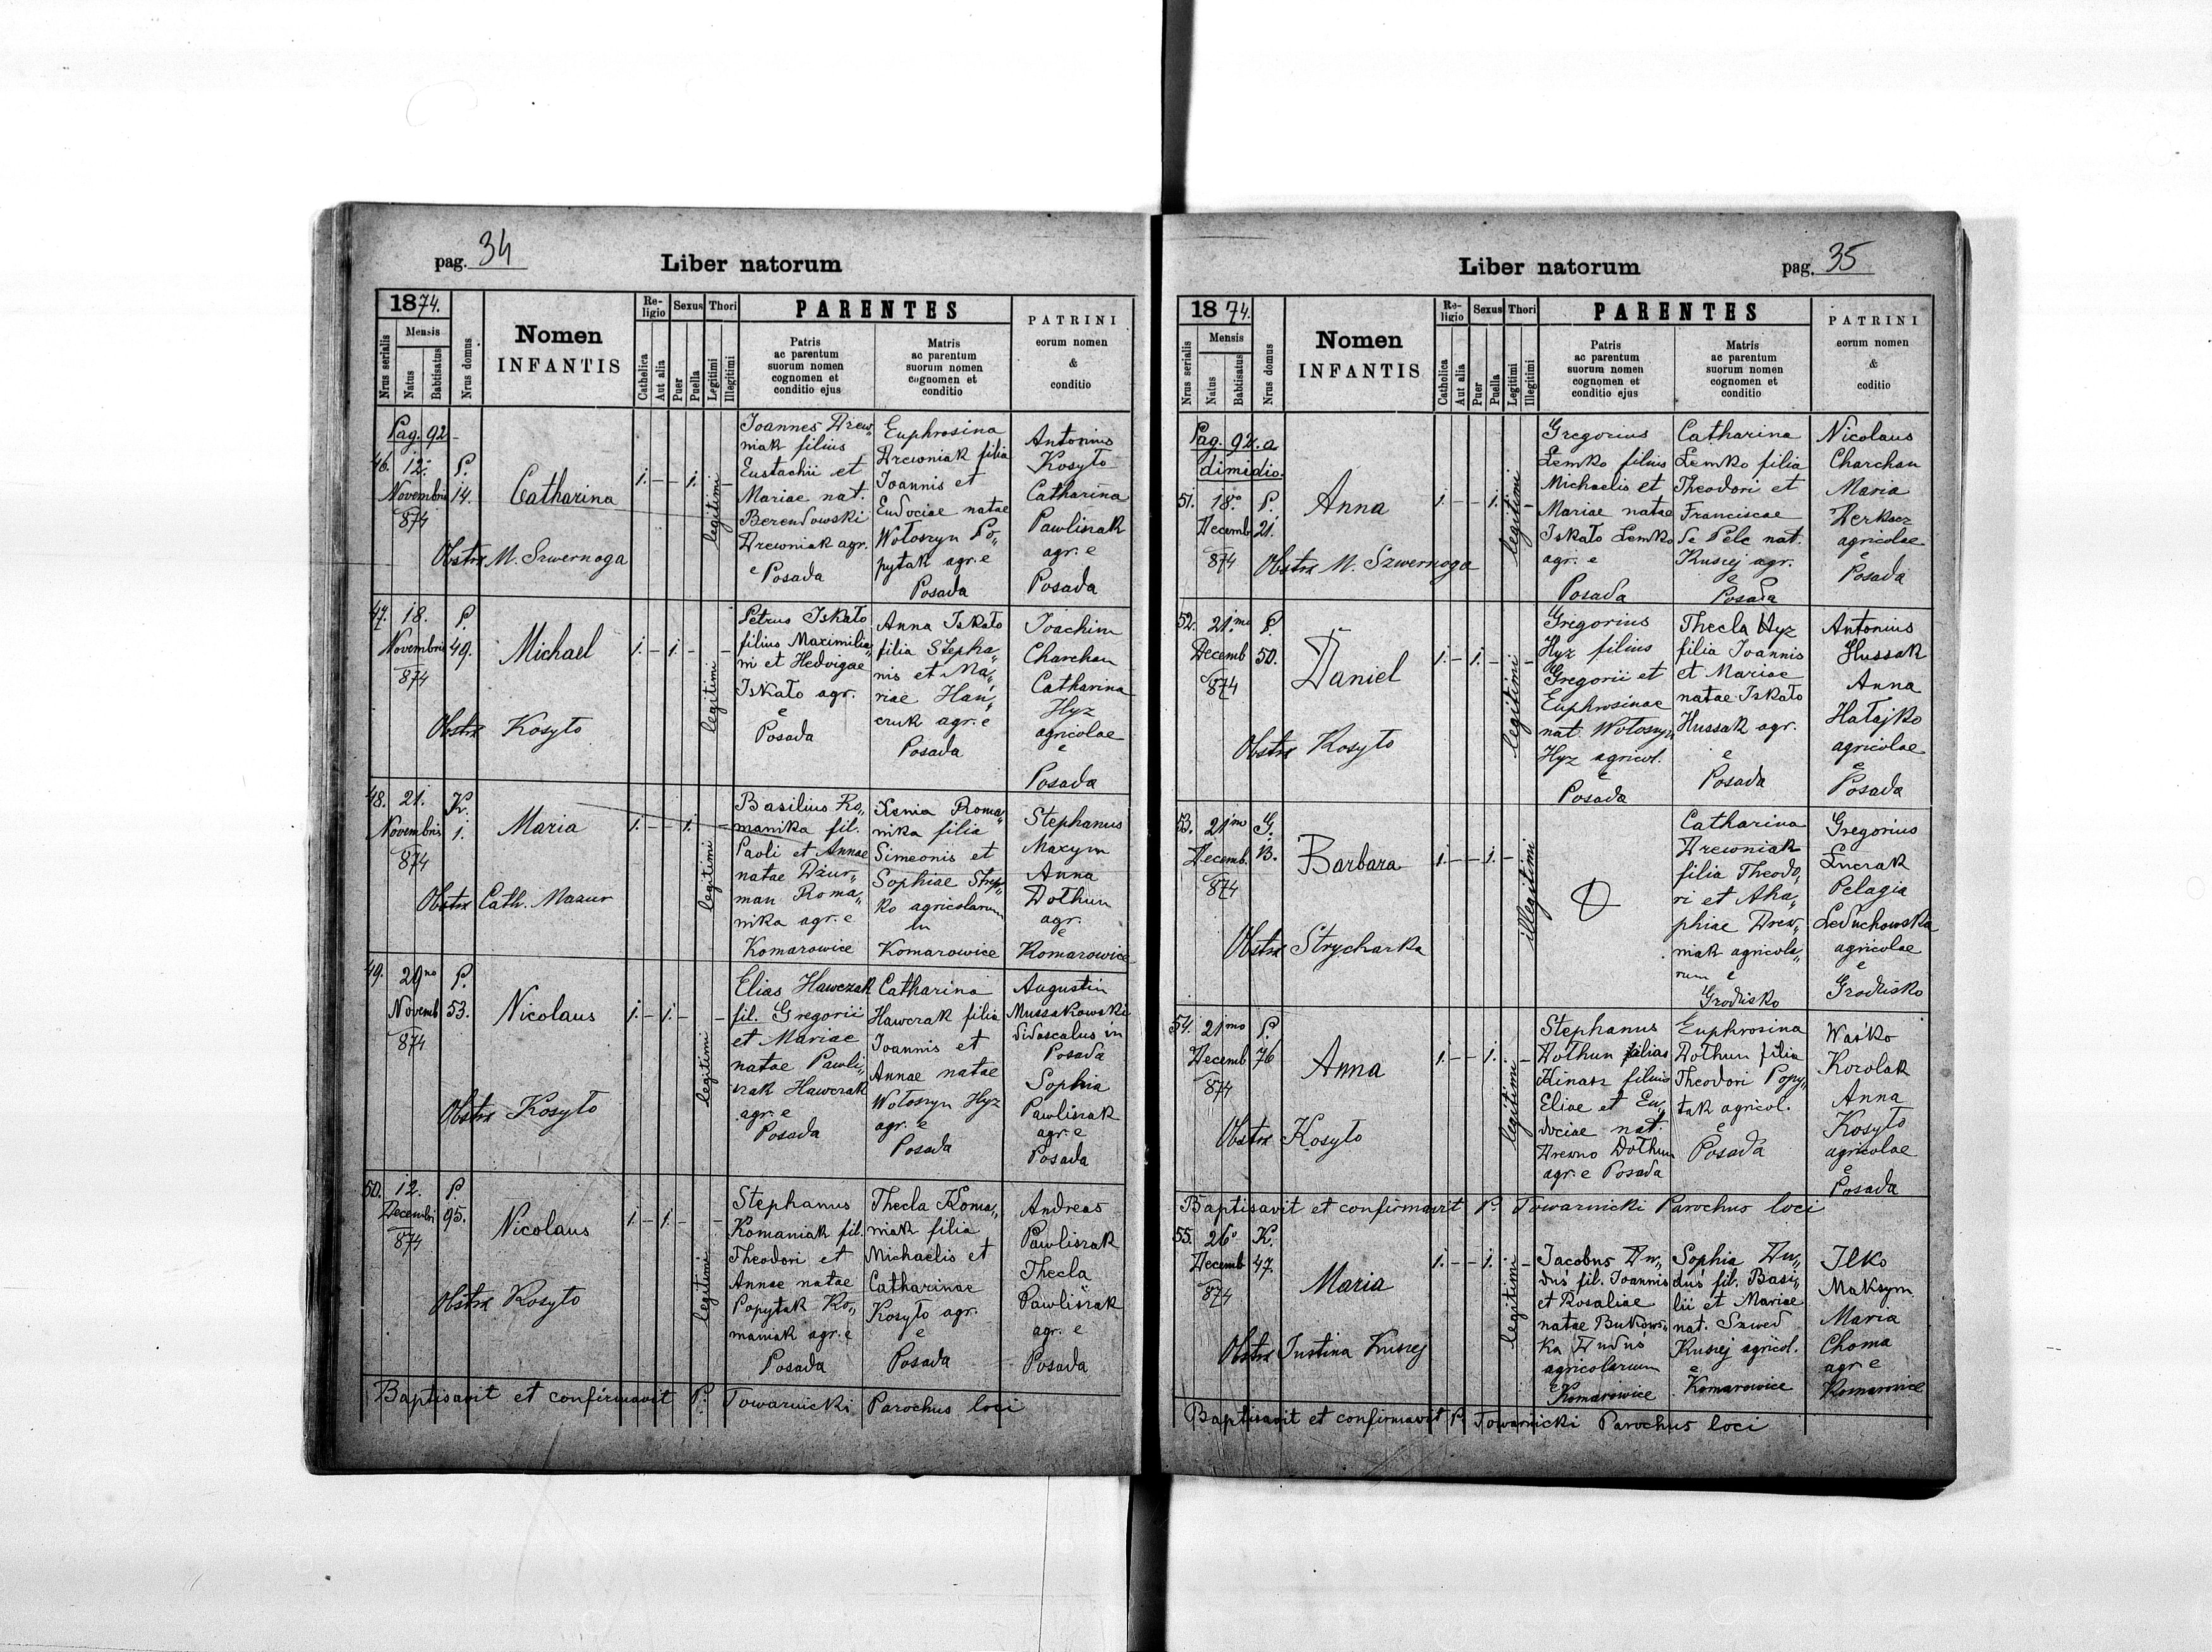 pag. 34
Liber natorum
1874.
Nrus serialis
Mensis
Natus
Babtisatus
Nrus domus
Nomen
INFANTIS
Religio
Catholica
Aut alia
Sexus
Puer
Puella
Thori
Legitimi
Illegitimi
PARENTES
Patris
ac parentum
suorum nomen
cognomen et
conditio ejus
Matris
ac parentum
suorum nomen
cognomen et
conditio
PATRINI
eorum nomen
&
conditio
Pag. 92
46. 12.
Novembris
874
P.
14.
Catharina
Obstrx M. Szwernoga
1. – – 1. –
legitimi
Joannes Drew„
niak filius
Eustachii et
Mariae nat.
Berendowski
Drewniak agr.
e Posada
Euphrosina
Drewniak filia
Joannis et
Eudociae natae
Wołoszyn Po„
pytak agr. e
Posada
Antonius
Kosyło
Catharina
Pawliszak
agr. e
Posada
47. 18.
Novembris
874
P.
49.
Michael
Obstrx Kosyło
1. – 1. – –
legitimi
Petrus Iskało
filius Maximilia„
ni et Hedvigae
Iskało agr.
e
Posada
Anna Iskało
filia Stepha„
nis et Ma„
riae Han„
czuk agr. e
Posada
Joachim
Charchan
Catharina
Hyz
agricolae
e
Posada
48. 21.
Novembris
874
K.
1.
Maria
Obstrx Cath. Mazur
1. – – 1. –
legitimi
Basilius Ro„
manika fil.
Pauli et Annae
natae Dzur„
man Roma„
nika agr. e
Komarowice
Xenia Roma„
nika filia
Simeonis et
Sophiae Strep„
ko agricolarum
in
Komarowice
Stephanus
Maxym
Anna
Dołhun
agr.
e
Komarowice
49. 29no
Novemb
874
P.
53.
Nicolaus
Obstrx Kosyło
1. – 1. – –
legitimi
Elias Hawczak
fil. Gregorii
et Mariae
natae Pawli„
szak Hawczak
agr. e
Posada
Catharina
Hawczak filia
Joannis et
Annae natae
Wołoszyn Hyz
agr. e
Posada
Augustin
Mussakowski
didascalus in
Posada
Sophia
Pawliszak
agr. e
Posada
50. 12.
Decembri
874
P.
95.
Nicolaus
Obstrx Kosyło
1. – 1. – –
legitimi
Stephanus
Romaniak fil.
Theodori et
Annae natae
Popytak Ro„
maniak agr. e
Posada
Thecla Roma„
niak filia
Michaelis et
Catharinae
Kosyło agr.
e
Posada
Andreas
Pawliszak
Thecla
Pawliszak
agr. e
Posada
Baptisavit et confirmavit P. Towarnicki Parochus loci
Liber natorum
pag. 35
1874.
Nrus serialis
Mensis
Natus
Babtisatus
Nrus domus
Nomen
INFANTIS
Religio
Catholica
Aut alia
Sexus
Puer
Puella
Thori
Legitimi
Illegitimi
PARENTES
Patris
ac parentum
suorum nomen
cognomen et
conditio ejus
Matris
ac parentum
suorum nomen
cognomen et
conditio
PATRINI
eorum nomen
&
coditio
Pag. 92. a
dimidio.
51. 18o
Decemb
874
P.
21.
Anna
Obstrx M. Szwernoga
1. – – 1. –
legitimi
Gregorius
Lemko filius
Michaelis et
Mariae natae
Iskało Lemko
agr. e
Posada
Catharina
Lemko filia
Theodori et
Franciscae
de Pele nat.
Kusiej agr.
e
Posada
Nicolaus
Charchan
Maria
Derkacz
agricolae
e
Posada
52. 21mo
Decemb
874
P.
50.
Daniel
Obstrx Kosyło
1. – 1. – –
legitimi
Gregorius
Hyz filius
Gregorii et
Euphrosinae
nat. Wołoszyn
Hyz agricol.
e
Posada
Thecla Hyz
filia Joannis
et Mariae
natae Iskało
Hussak agr.
e
Posada
Antonius
Hussak
Anna
Hałajko
agricolae
e
Posada
53. 21mo
Decemb.
874
G.
13.
Barbara
Obstrx Strycharka
1. – – 1. –
illegitimi
Catharina
Drewniak
filia Theodo„
ri et Aha„
phiae Drew„
niak agricola„
rum e
Grodzisko
Gregorius
Łuczak
Pelagia
Leduchowska
agricolae
e
Grodzisko
54. 21mo
Decemb
874
P.
76
Anna
Obstrx Kosyło
1. – – 1. –
legitimi
Stephanus
Dołhun alias
Kinasz filius
Eliae et Eu„
dociae nat.
Drewno Dołhun
agr. e Posada
Euphrosina
Dołhun filia
Theodori Popy„
tak agricol.
e
Posada
Waśko
Korolak
Anna
Kosyło
agricolae
e
Posada
Baptisavit et confirmavit P. Towarnicki Parochus loci
55. 26o
Decemb
874
K.
47.
Maria
Obstrx Justina Kusiej
1. – – 1. –
legitimi
Jacobus Du„
duś fil. Joannis
et Rosaliae
natae Bukows„
ka Duduś
agricolarum
e Komarowice
Sophia Du„
duś fil. Basi„
lii et Mariae
nat. Szwed
Kusiej agricol.
e
Komarowice
Ilko
Maksym
Maria
Choma
agr e
Komarowice
Baptisavit et confirmavit P. Towarnicki Parochus loci